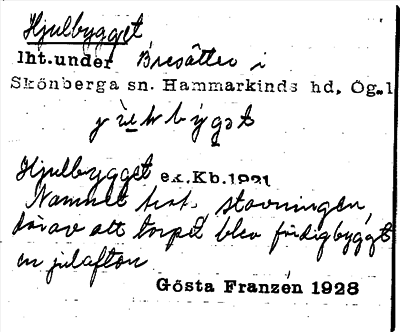 Hjulbygget
lht. under Bresätter i
Skönberga sn. Hammarkinds hd, Ög.l
Hjulbygget ex.Kb.1921
Namnet hot. stavningen,
därav att torpet blev färdigbyggt
en julafton
Gösta Franzén 1928